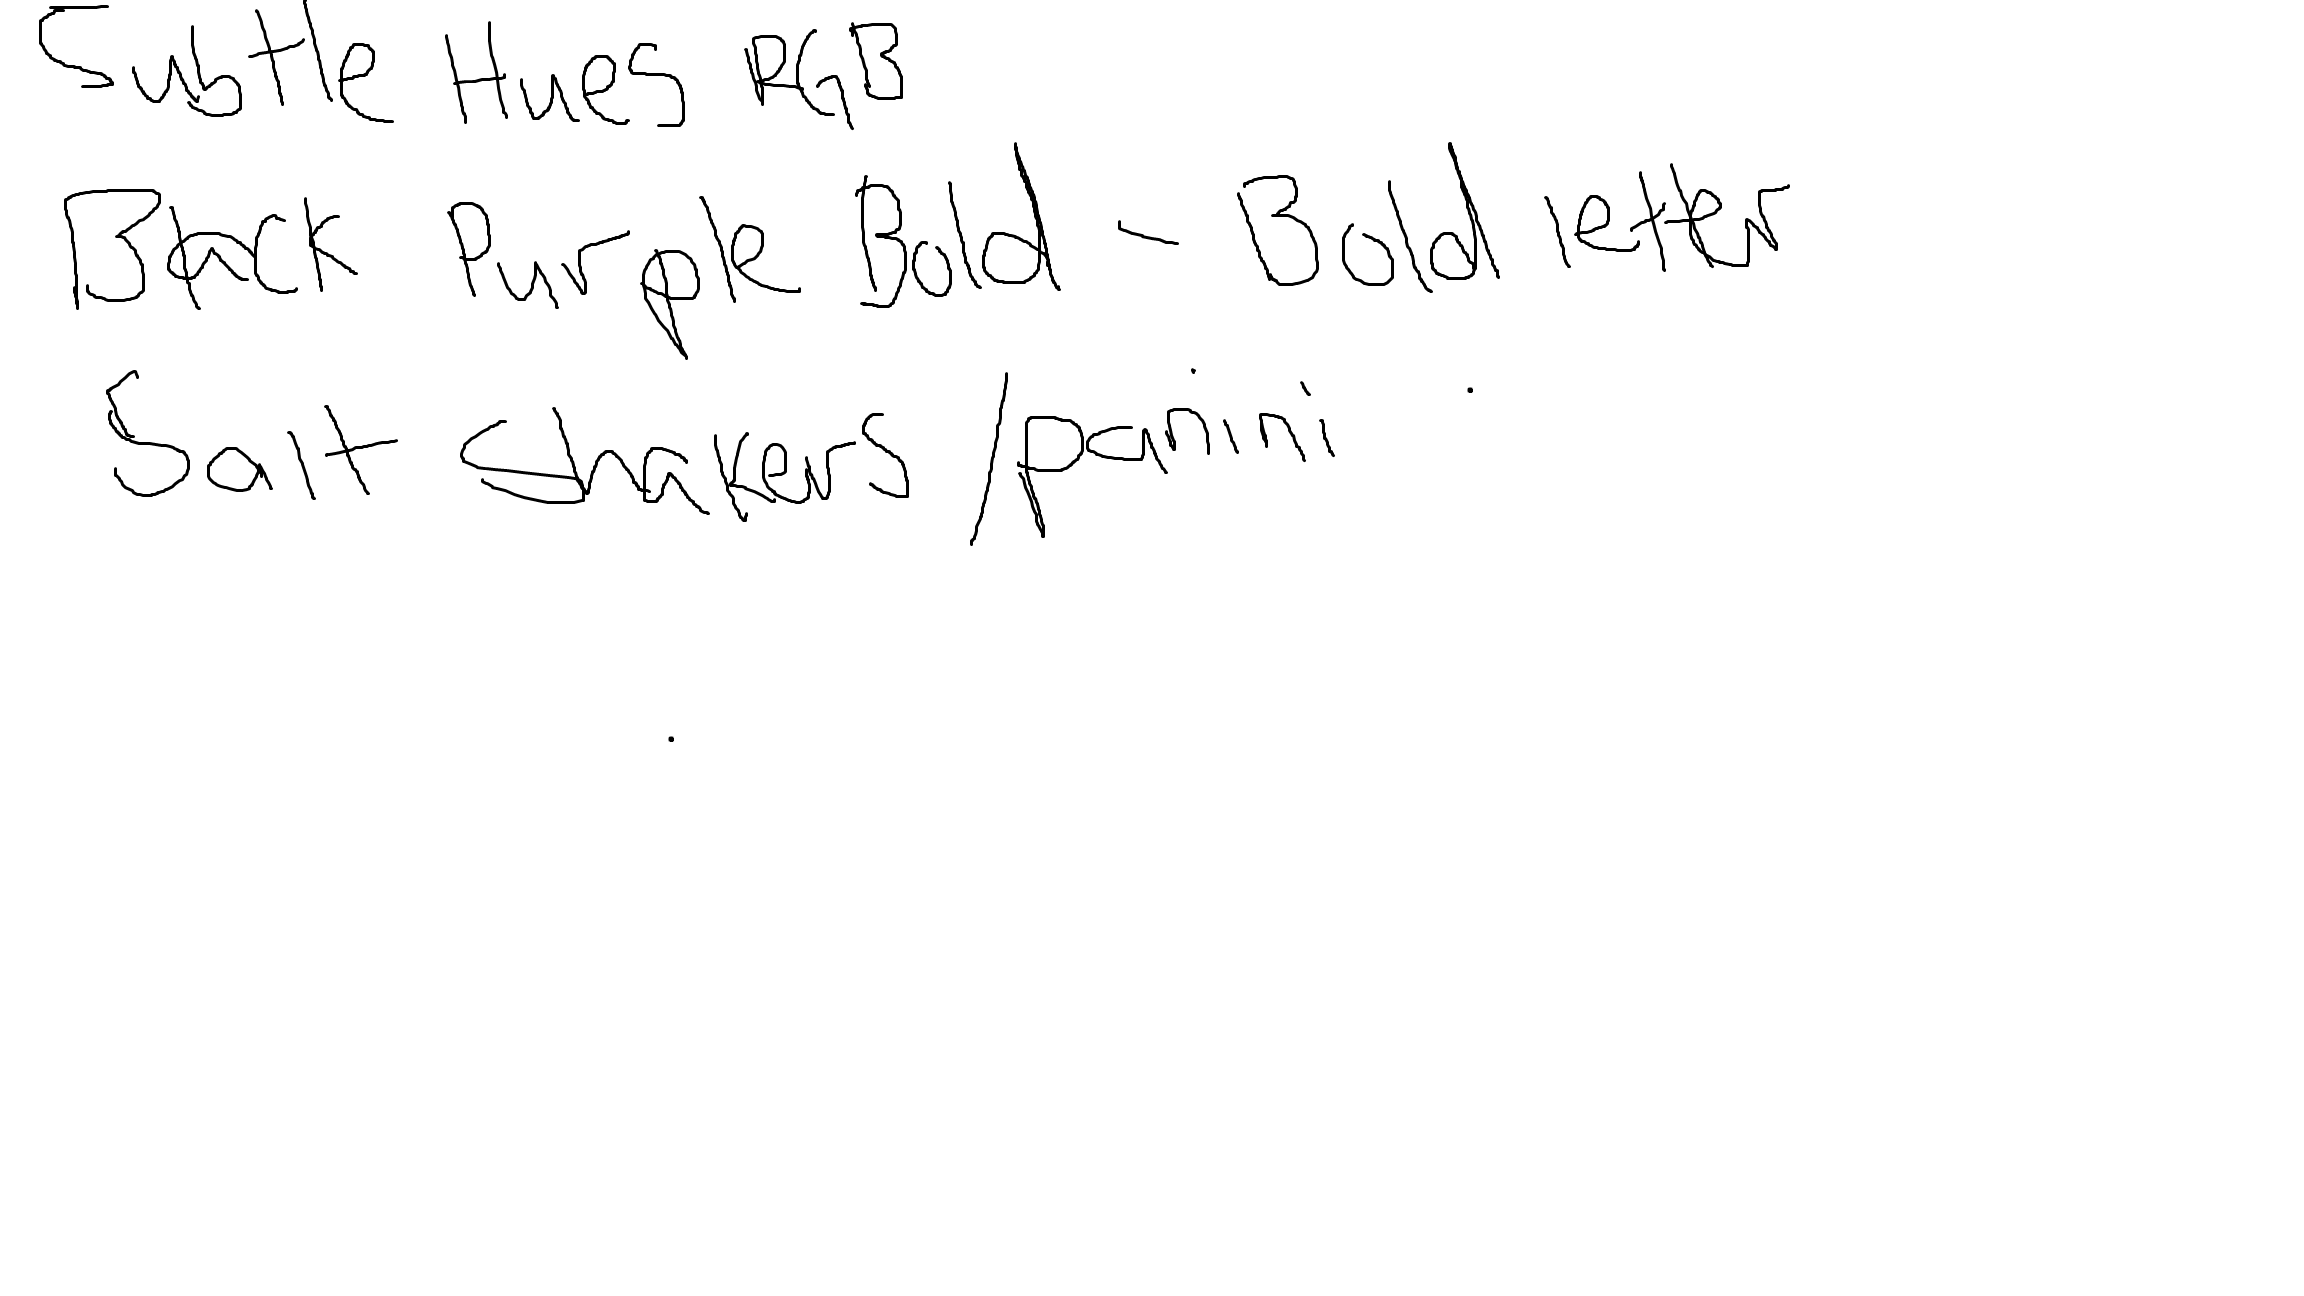 Subtle Hues RGB
Black Purple Bold - Bold letter
Salt Shakers /panini